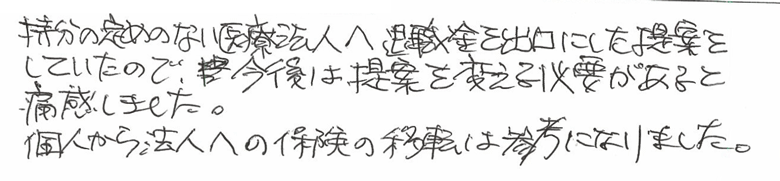 持分の定めのない医療法人へ退職金を出口にした提案を
していたので、今後は提案を変える必要があると
痛感しました。
個人から法人への保険の移転は参考になりました。